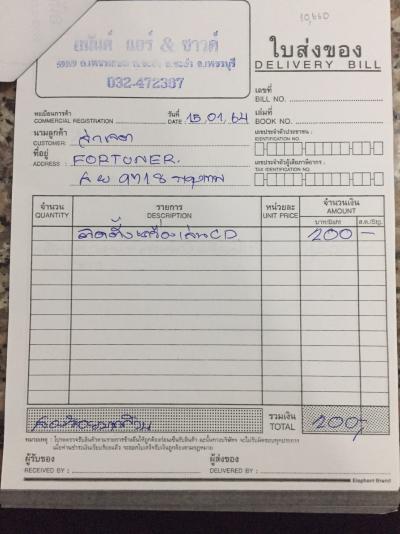 10,660
อนันต์ แอร์ & ซาวด์
032-472387
ใบส่งของ
DELIVERY BILL
เลขที่
BILL NO.
ทะเบียนการค้า
COMMERCIAL REGISTRATION
วันที่
DATE 15.01.64
เล่มที่
BOOK NO.
นามลูกค้า
CUSTOMER:
เลขประจำตัวประชาชน :
IDENTIFICATION NO.
ที่อยู่
ADDRESS : FORTUNER.
เลขประจำตัวผู้เสียภาษีอากร :
TAX IDENTIFICATION NO.
9718 กรุงเทพ
จำนวน
QUANTITY
รายการ
DESCRIPTION
หน่วยละ
UNIT PRICE
จำนวนเงิน
AMOUNT
บาท/Baht
ส.ต./Stg.
ติดตั้งเครื่องเล่น CD
200 -
สองร้อยบาทถ้วน
รวมเงิน
TOTAL
200,-
ผู้รับของ
RECEIVED BY :
ผู้ส่งของ
DELIVERED BY :
Elephant Brand